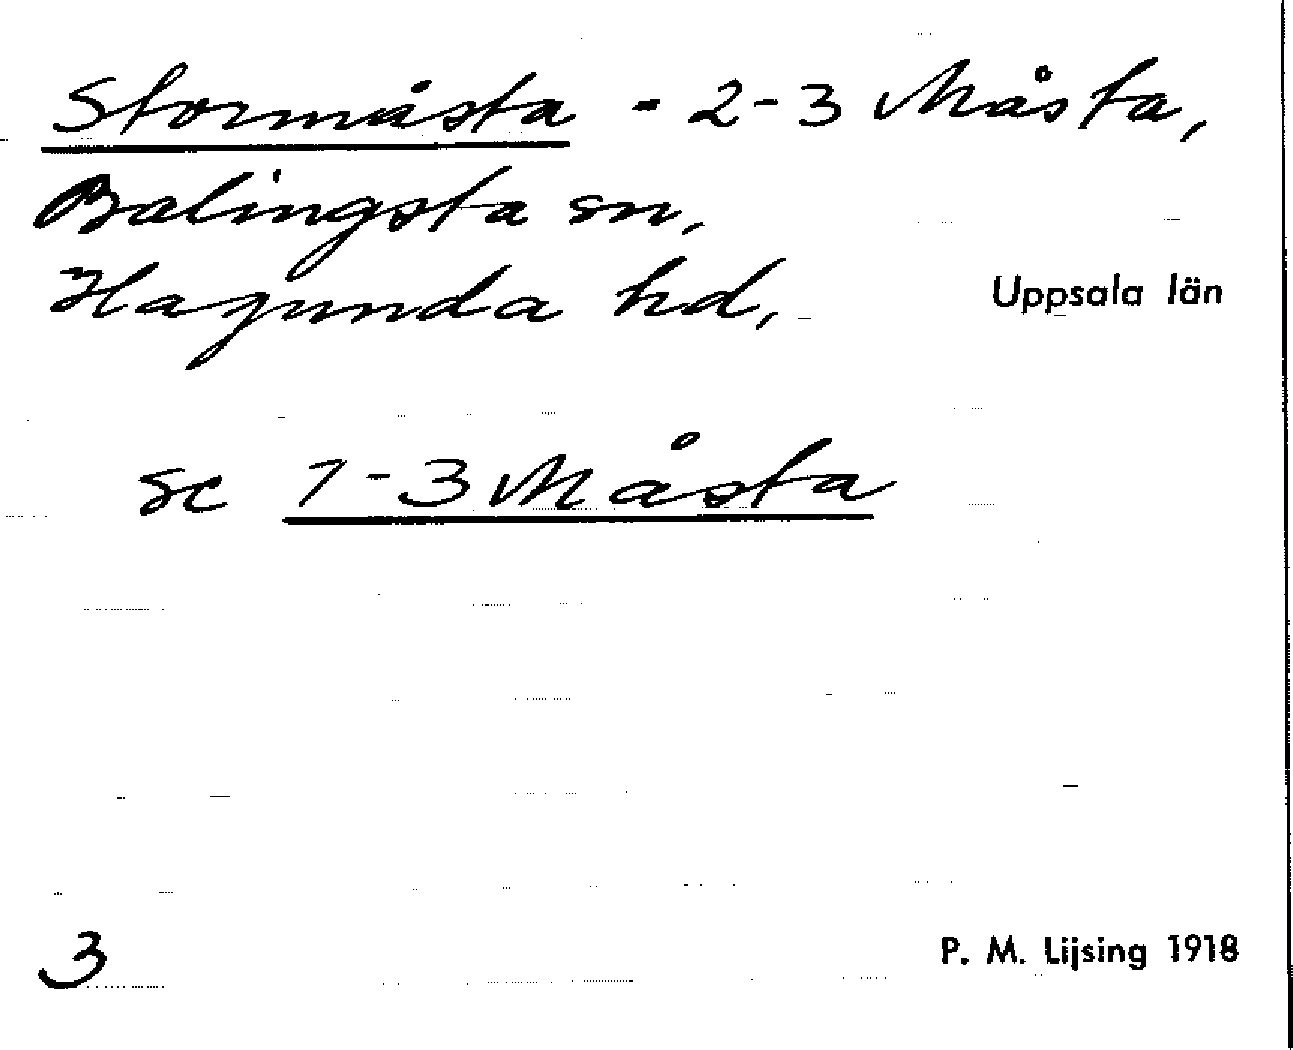 Stormåsta - 2-3 Måsta,
Balingsta sn,
Hagunda hd, Uppsala län
se 1-3 Måsta
3
P. M. Lijsing 1918